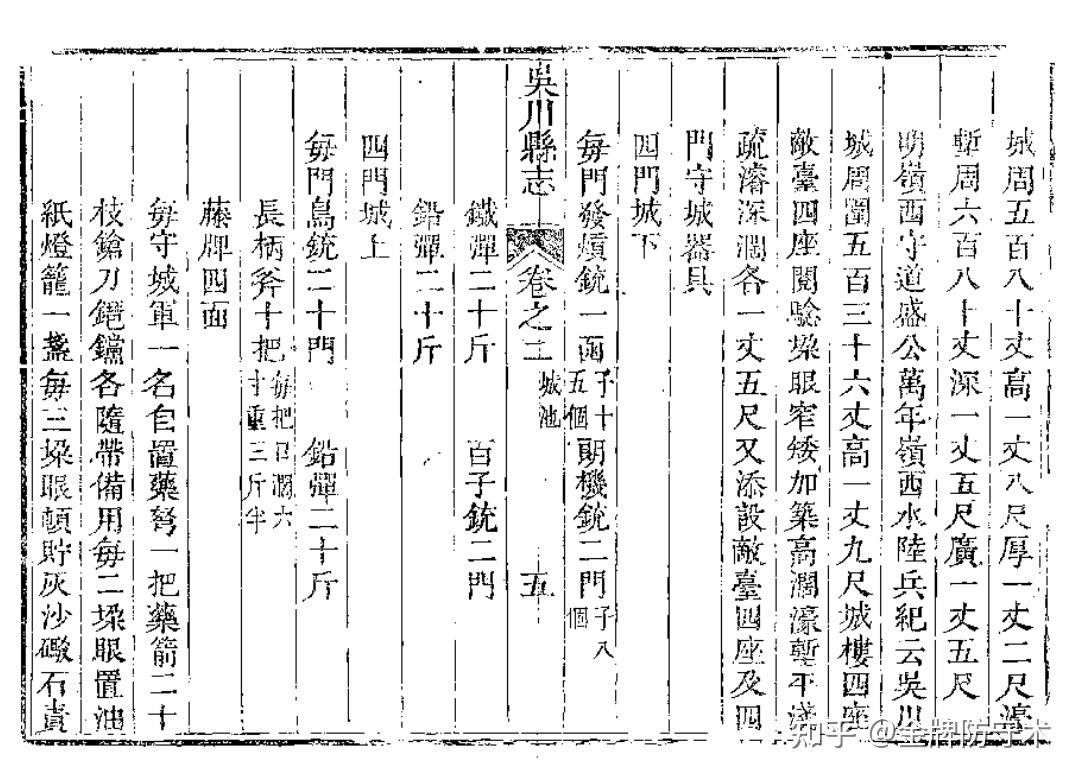 城周五百八十丈高一丈八尺厚一丈二尺濠
塹周六百八十丈深一丈五尺廣一丈五尺
明嶺西守道盛公萬年嶺西水陸兵紀云吳川
城周圍五百三十六丈高一丈九尺城樓四座
敵臺四座閱騐垛眼窄矮加築高濶濠塹平淺
疏濬深濶各一丈五尺又添設敵臺四座及四
門守城器具
四門城下
每門發熕銃一面子十五個朗機銃二門子八個
吳川縣志 卷之二 城池 五
鐵彈二十斤 百子銃二門
鉛彈二十斤
四門城上
每門鳥銃二十門 鉛彈二十斤
長柄斧十把每把口濶六寸重三斤半
藤牌四面
每守城軍一名自置藥弩一把藥箭二十
枝鎗刀各隨帶備用每二垛眼置油
紙燈籠一盞每三垛眼頓貯灰沙礮石責
知乎 @金牌防守术